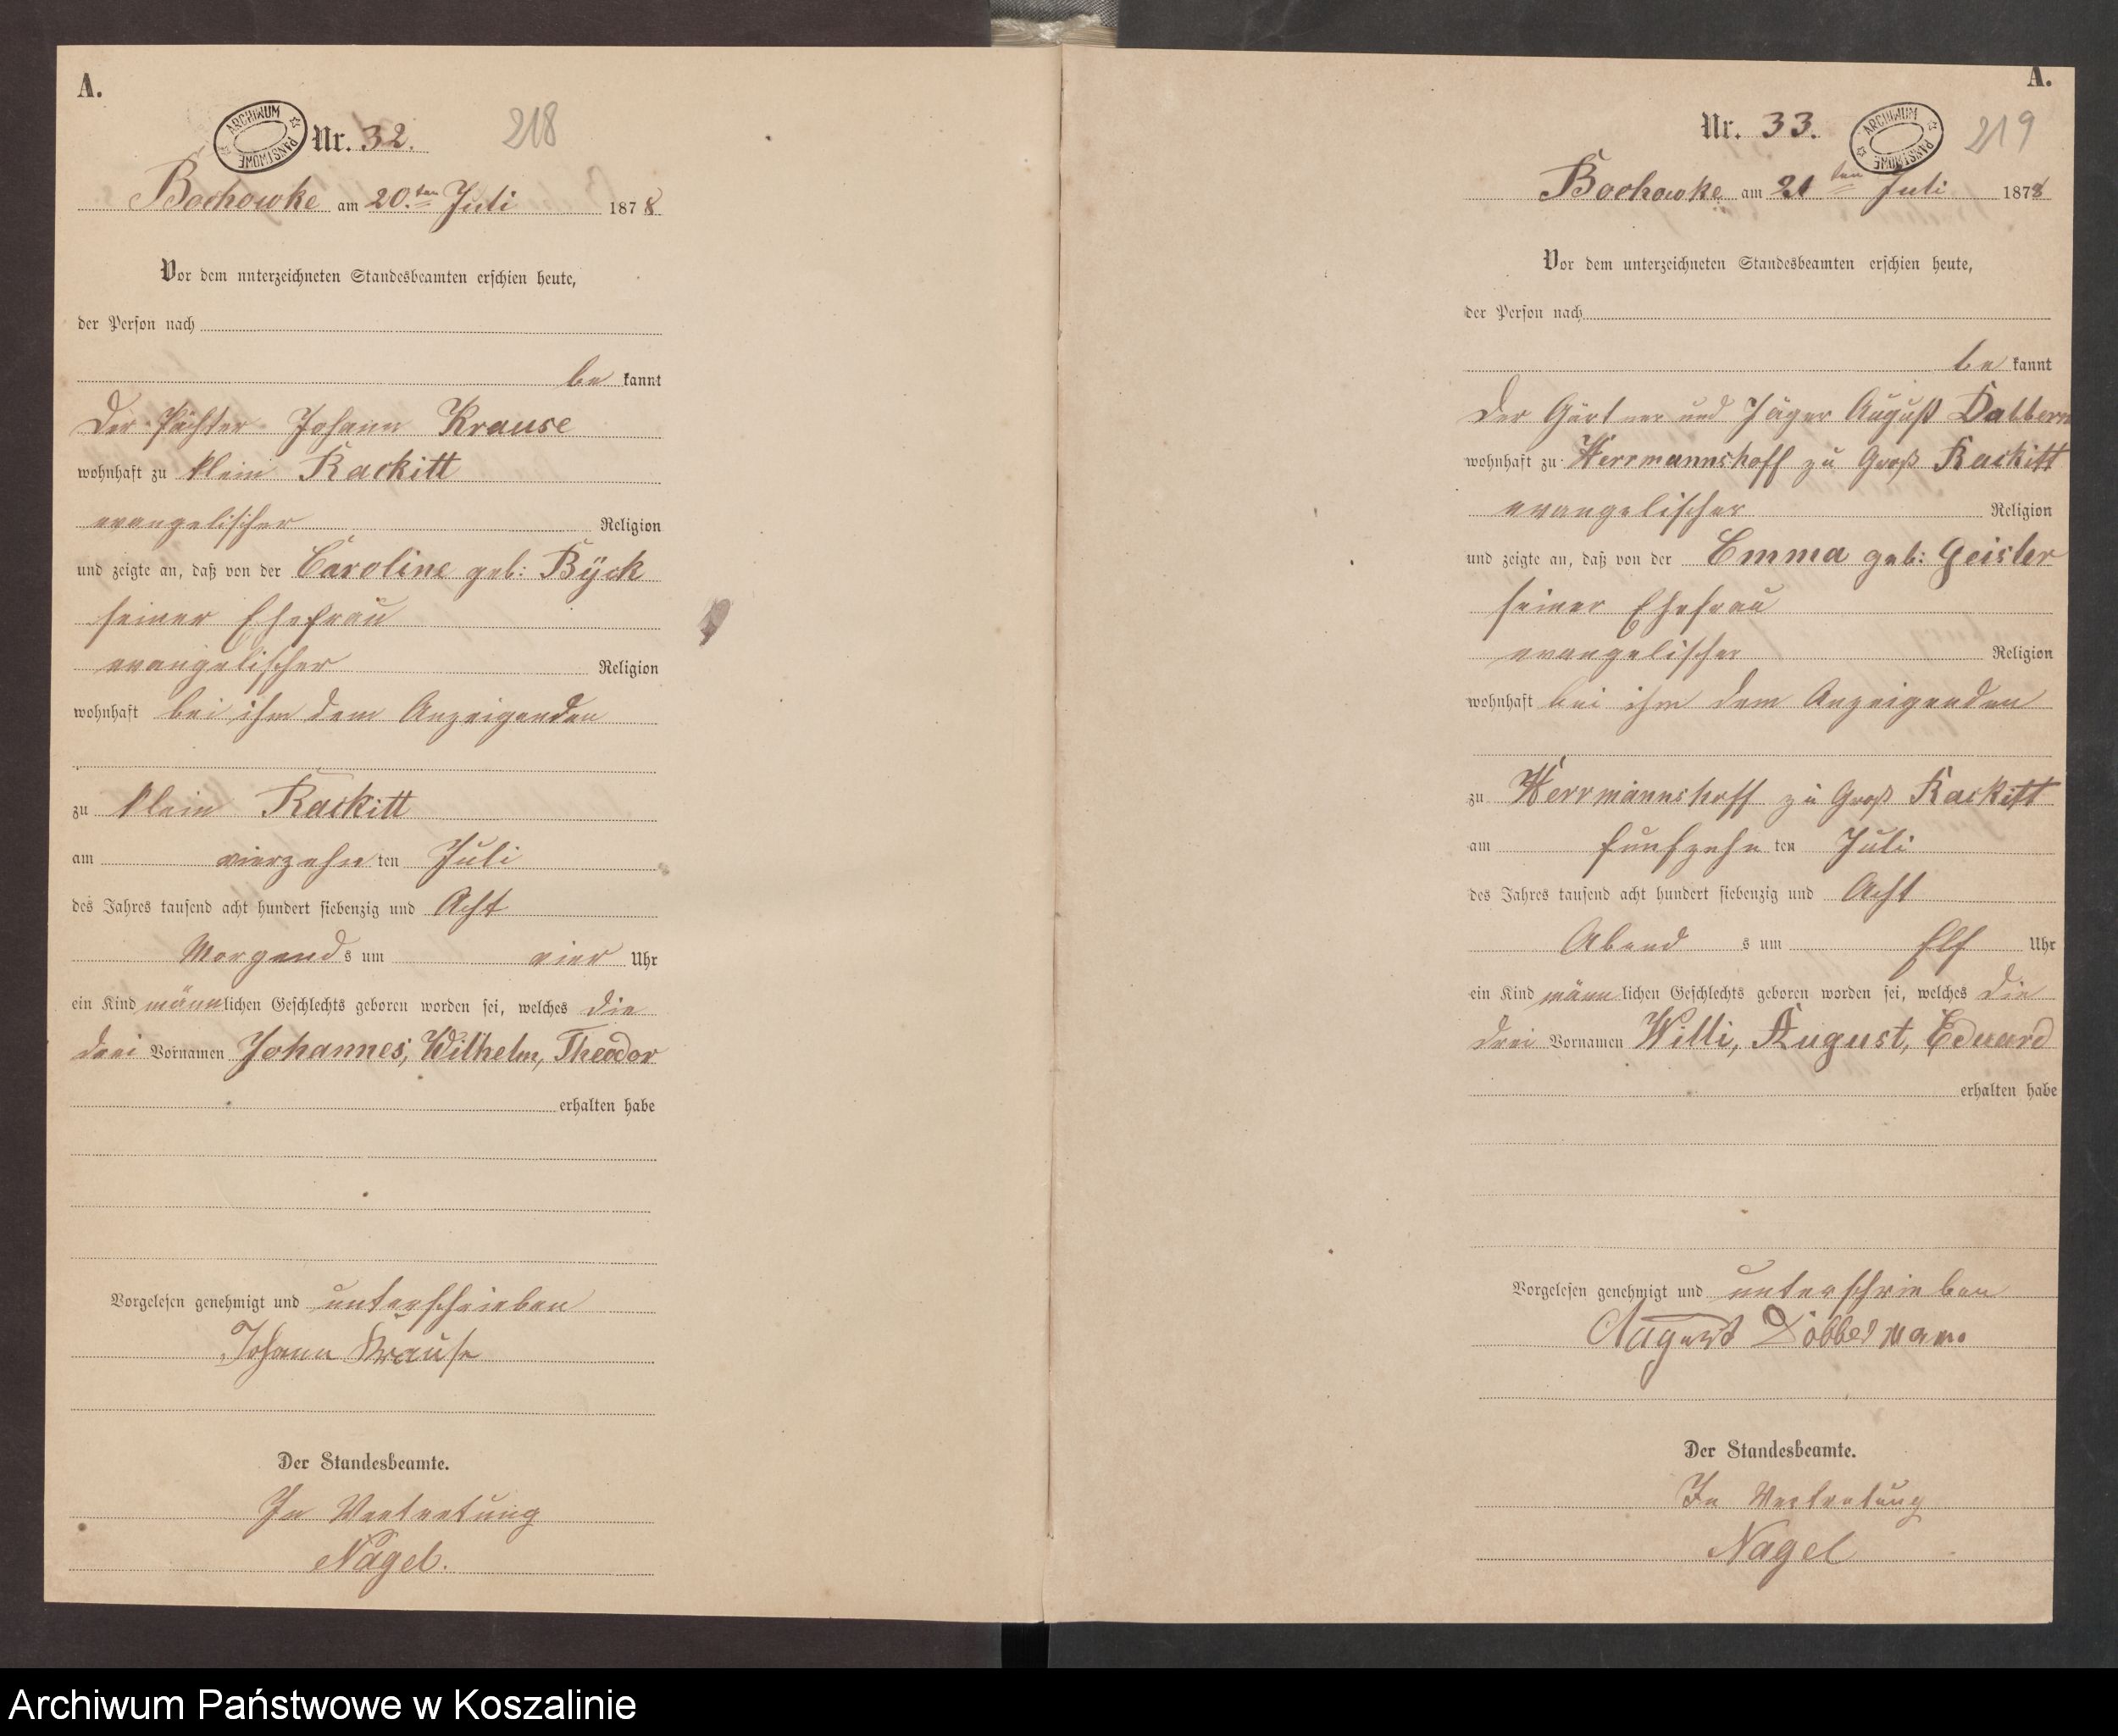 A.
ARCHIWUM PAŃSTWOWE
Nr. 32.
218
Bochowke am 20.ten Juli 1878
Vor dem unterzeichneten Standesbeamten erschien heute,
der Person nach
be kannt
Der Pächter Johann Krause
wohnhaft zu Klein Rackitt
evangelischer Religion
und zeigte an, daß von der Caroline geb: Bÿck
seiner Ehefrau
evangelischer Religion
wohnhaft bei ihm dem Anzeigenden
zu Klein Rackitt
am vierzehn ten Juli
des Jahres tausend acht hundert siebenzig und Acht
Morgend s um vier Uhr
ein Kind männlichen Geschlechts geboren worden sei, welches die
drei Vornamen Johannes, Wilhelm, Theodor
erhalten habe
Vorgelesen genehmigt und unterschrieben
Johann Krause
Der Standesbeamte.
In Vertretung
Nagel.
A.
Nr. 33.
ARCHIWUM PAŃSTWOWE
219
Bochowke am 21 ten Juli 1878
Vor dem unterzeichneten Standesbeamten erschien heute,
der Person nach
be kannt
Der Gärtner und Jäger August
wohnhaft zu Herrmannshoff zu Groß Rackitt
evangelischer Religion
und zeigte an, daß von der Emma geb: Geisler
seiner Ehefrau
evangelischer Religion
wohnhaft bei ihm dem Anzeigenden
zu Herrmannshoff zu Groß Rackitt
am funfzehn ten Juli
des Jahres tausend acht hundert siebenzig und Acht
Abend s um Elf Uhr
ein Kind männlichen Geschlechts geboren worden sei, welches die
drei Vornamen Willi, August, Eduard
erhalten habe
Vorgelesen genehmigt und unterschrieben
August Döbbermann
Der Standesbeamte.
In Vertretung
Nagel
Archiwum Państwowe w Koszalinie